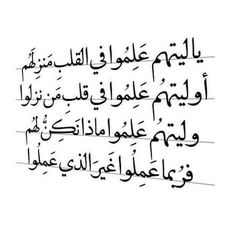 ياليتهم عَلِمُوا في القلبِ مَنزِلَهُم
أوليتهُم عَلِمُوا في قلبِ مَن نزلوا
وليتهُم عَلِمُوا ماذا نَكِنُّ لهُم
فرُبما عَمِلُوا غَيرَ الذي عَمِلُوا